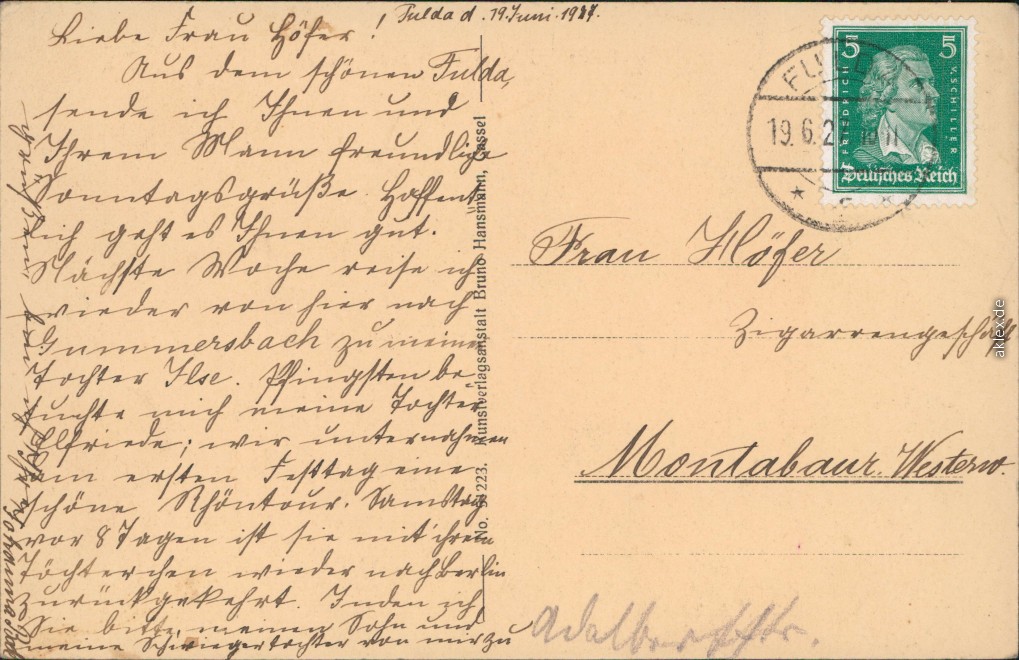 Fulda d. 19. Juni. 1927.
Liebe Frau Höfer!
Aus dem schönen Fulda,
sende ich Ihnen und
Ihrem Mann freundliche
Sonntagsgrüße. Hoffent
lich geht es Ihnen gut.
Nächste Woche reise ich
wieder von hier nach
Gummersbach zu meiner
Tochter Ilse. Pfingsten be
suchte mich meine Tochter
Elfriede; wir unternahmen
am ersten Festtag eine
schöne Rhöntour. Samstag
vor 8 Tagen ist sie mit ihrem
Töchterchen wieder nach Berlin
zurückgekehrt. Indem ich
Sie bitte, meinen Sohn und
meine Schwiegertochter von mir zu
Johanna
No. 57223. Kunstverlagsanstalt Bruno Hansmann, Cassel
5 5
FRIEDRICH V. SCHILLER
Deutsches Reich
FULDA
19.6.27
Frau Höfer
Zigarrengeschäft
Montabaur. Westerw.
Adalbertstr.
aklex.de